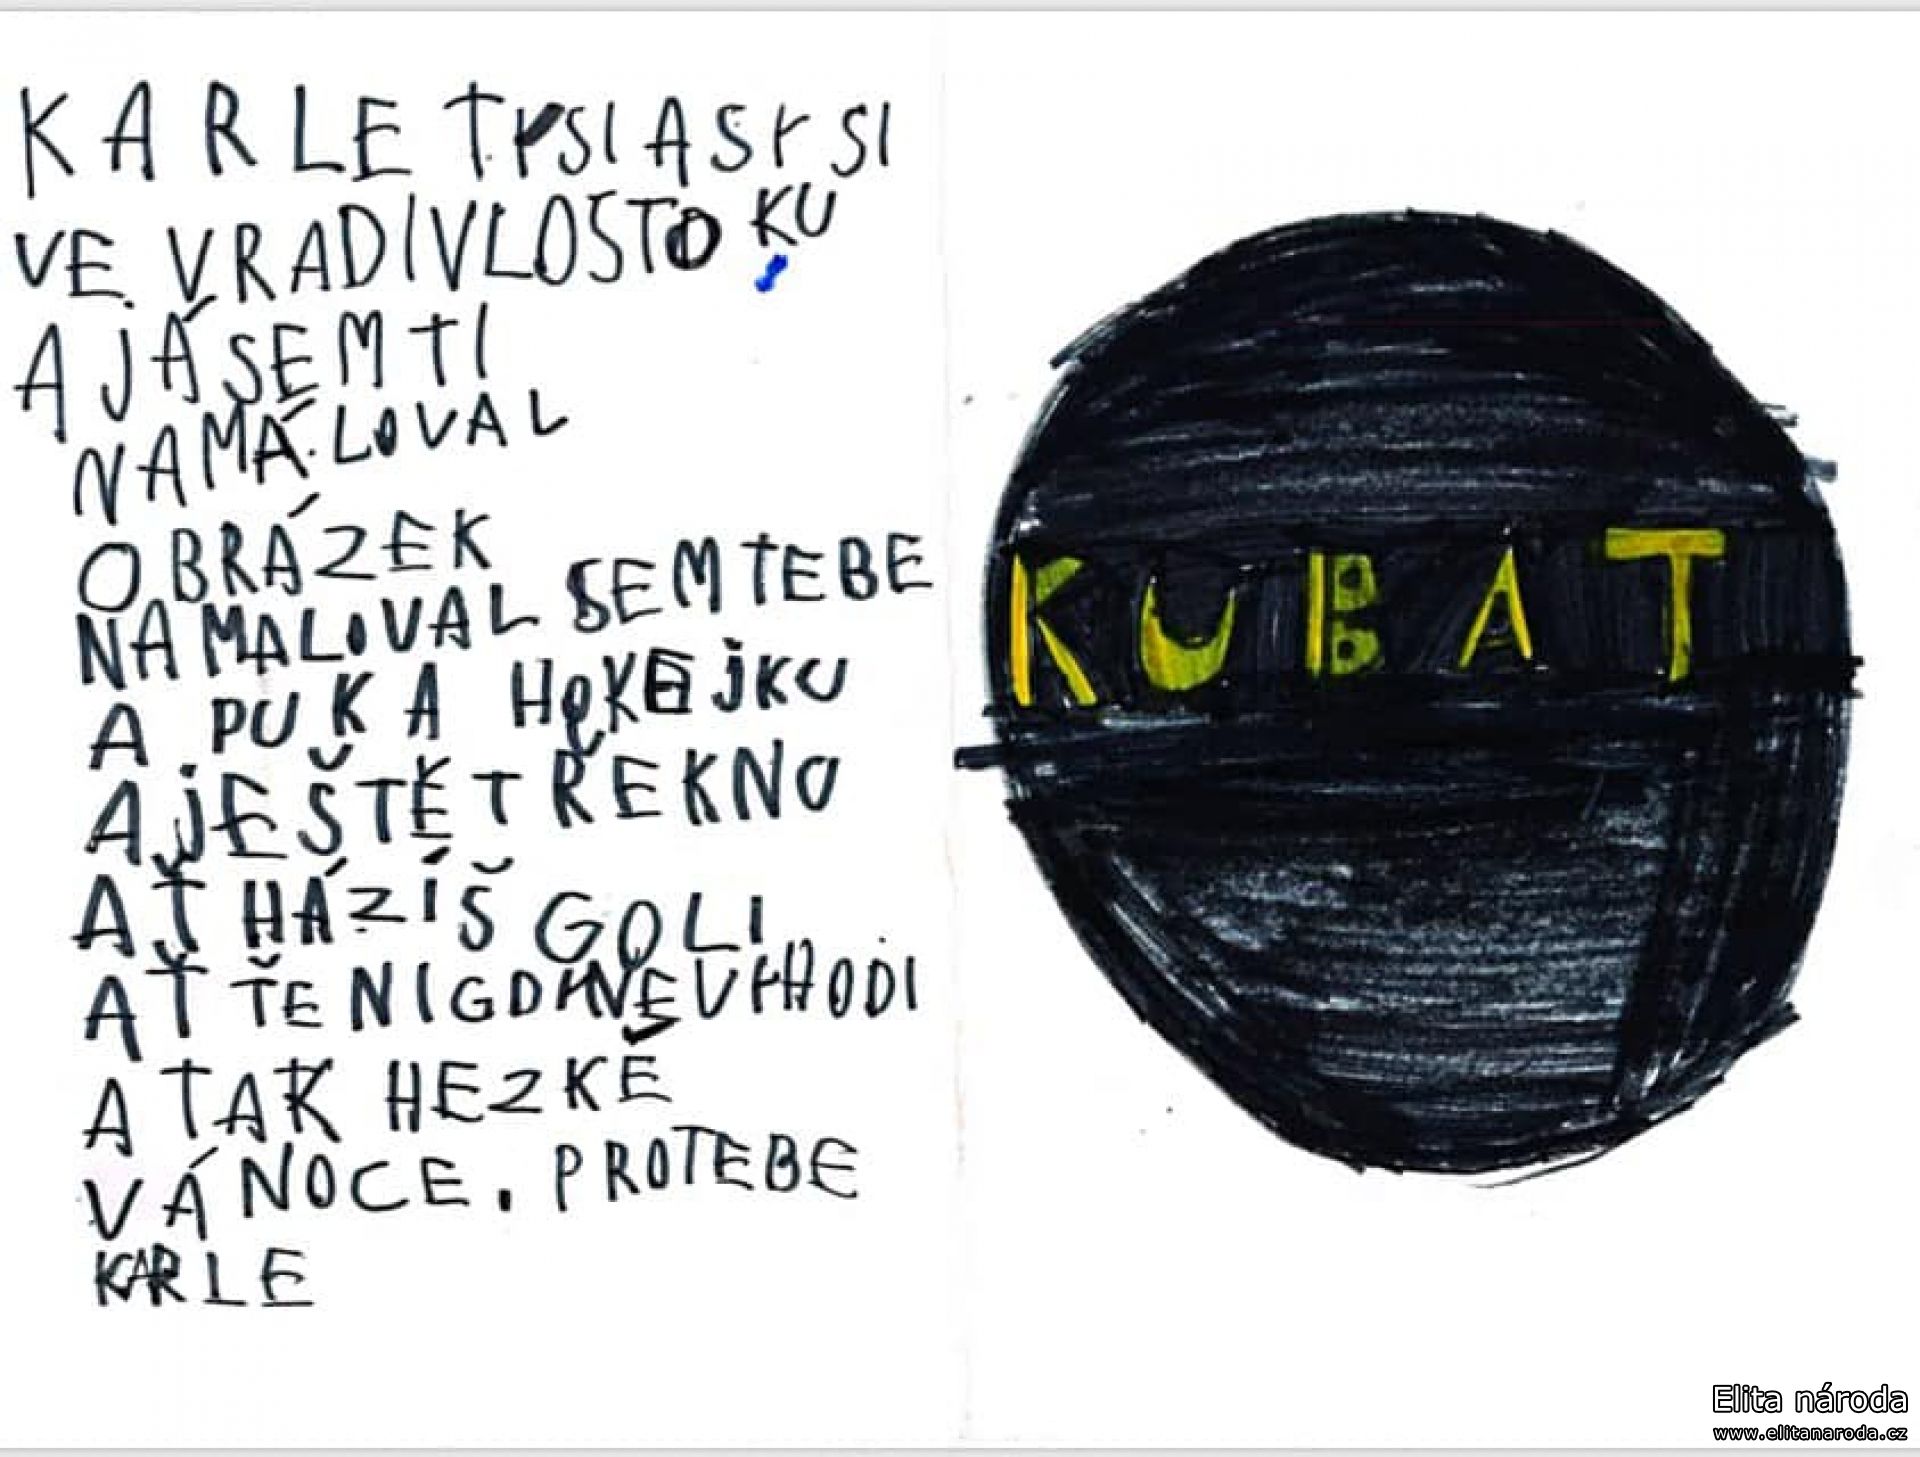 KARLE TY SI ASY SI
VE VRADIVLOSTOKU
A JÁ SEM TI
NAMALOVAL
OBRÁZEK
NAMALOVAL SEM TEBE
A PUK A HOKEJKU
A JEŠTĚ TŘEKNU
AŤ HÁZÍŠ GOLI
AŤ ŤE NIGDY NEVYHODI
A TAK HEZKÉ
VÁNOCE. PRO TEBE
KARLE
KUBAT
Elita národa
www.elitanaroda.cz